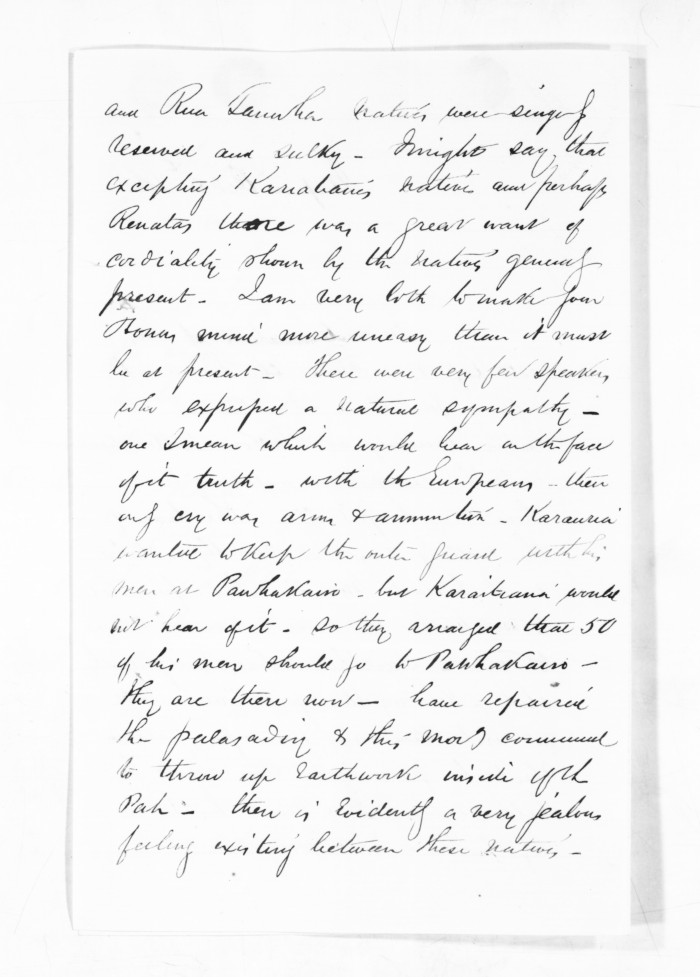 and Rua Tauwha natives were singly
reserved and sulky - I might say, that
excepting Karaitiana's natives and perhaps
Renatas there was a great want of
cordiality shown by the natives generally
present - I am very loth to make your
Honors mind more uneasy than it must
be at present - There were very few speakers
who expressed a natural sympathy -
one I mean which would bear on the face
of it truth - with the Europeans - their
only cry was arms & ammunition - Karauria
wanted to keep the outer guard with his
men at Pawhakairo - but Karaitiana would
not hear of it - so they arranged that 50
of his men should go to Pawhakairo -
they are there now - have repaired
the palasading & this mor'g commenced
to throw up Earthwork inside of the
Pah - there is Evidently a very jealous
feeling existing between these natives -